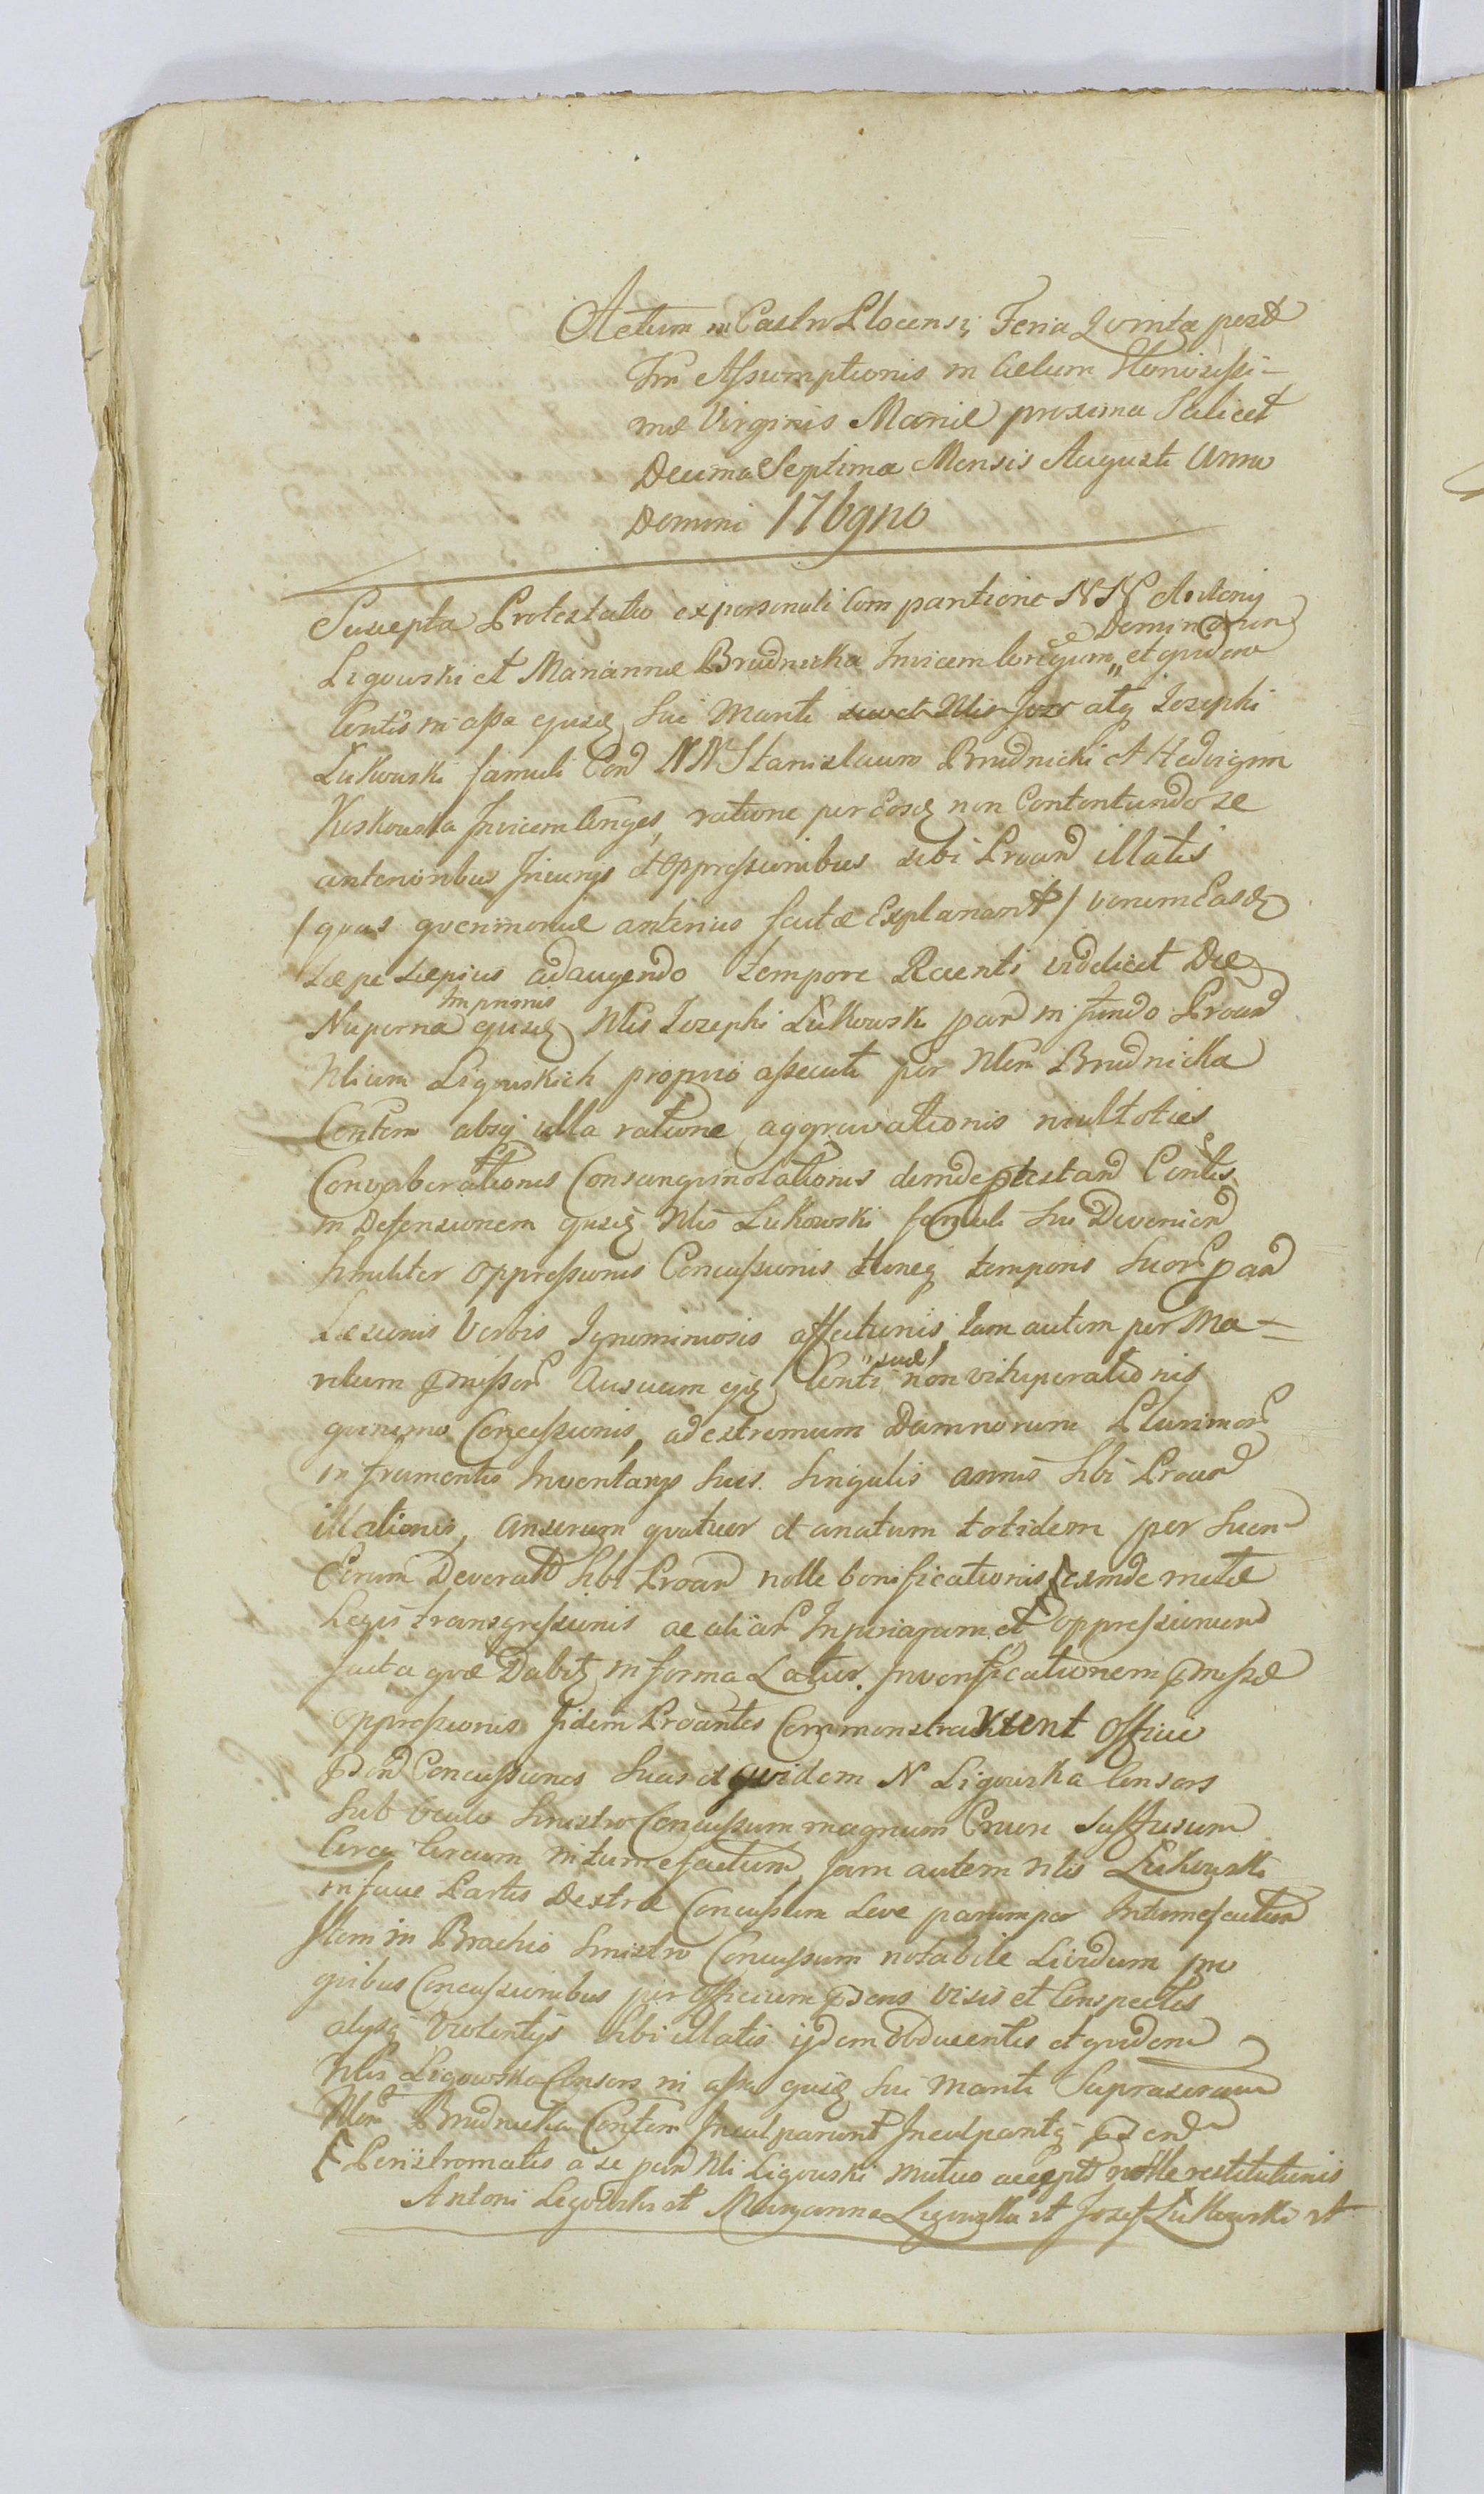 Actum in Castro Plocensi, Feria Quinta post
Ftm Assumptionis in Caelum Gloriosissi-
mae Virginis Mariae proxima Scilicet
Decima Septima Mensis Augusti Anno
Domini 176gno
Suscepta Protestatio ex personali Comparitione NN Antonij
Dominorum
Ligowski et Mariannae Brudnicka Invicem Conjugum et quidem
Contis in assa ejusd Sui Mariti atq Iozephi
Lukowski famuli Con NN Stanislaum Brudnicki et Hedvigim
Kiskowska Invicem Conges, ratione per Eosd non Contentando se
anterioribus Injurijs et Oppressionibus sibi Proan illatis
/ quas querimoniae anterius factae Explanant / verum Easd
saepe saepius adaugendo tempore Recenti videlicet Die
Imprimis
Nuperna ejusd Nlis Iozephi Lukowski par in fundo Proan
Nlium Ligowskich proprio assecuti per Nlem Brudnicka
Contem absq ulla ratione aggravationis multoties
Converberationis Consanguinolationis deinde Contis
in Defensionem ejusd Nlis Lukowski famuli Sui Devenien
Similiter Oppressionis Concussionis temporis
Laesionis Verbis Ignominiosis affectionis, Iam autem per Ma-
suae
ritum Ausuum ejq Conti non vituperationis
quinimo Concussionis, ad extremum Damnorum Plurimor
in frumentis Inventarijs Suis Singulis annis Sibi Proan
illationis, anserum quatuor et anatum totidem per Suem
Eorum Devorat Sibi Proan nolle bonificationis exinde metae
Legis transgressionis ac aliar Injuriarum et Oppressionum
juxta quae Dabit in forma Latior. In verificationem
oppressionis Iidem Proantes Commonstraverunt Officio
Concussiones Suas et quidem N Ligowska Consors
Sub Oculo Sinistro Concussum magnum Cruore Suffusum
Circa Circum intumefactum, Iam autem Nlis Lukowski
in facie Partis Dextrae Concussum Leve parumper Intumefactum
Item in Brachio Sinistro Concussum notabile Lividum pro
quibus Concussionibus per Officium visis et Conspectis
alijsq Violentijs Sibi illatis ijdem Obducentes et quidem
Nlis Ligowska Consors in assa ejusd Sui Mariti Supra
Nlem Brudnicka Contem Inculparunt Inculpantq
Peristromatis a se par Nli Ligowski mutuo accepti nolle restitutionis
Antoni Ligowski Maryanna Ligowska Jozef Lukowski